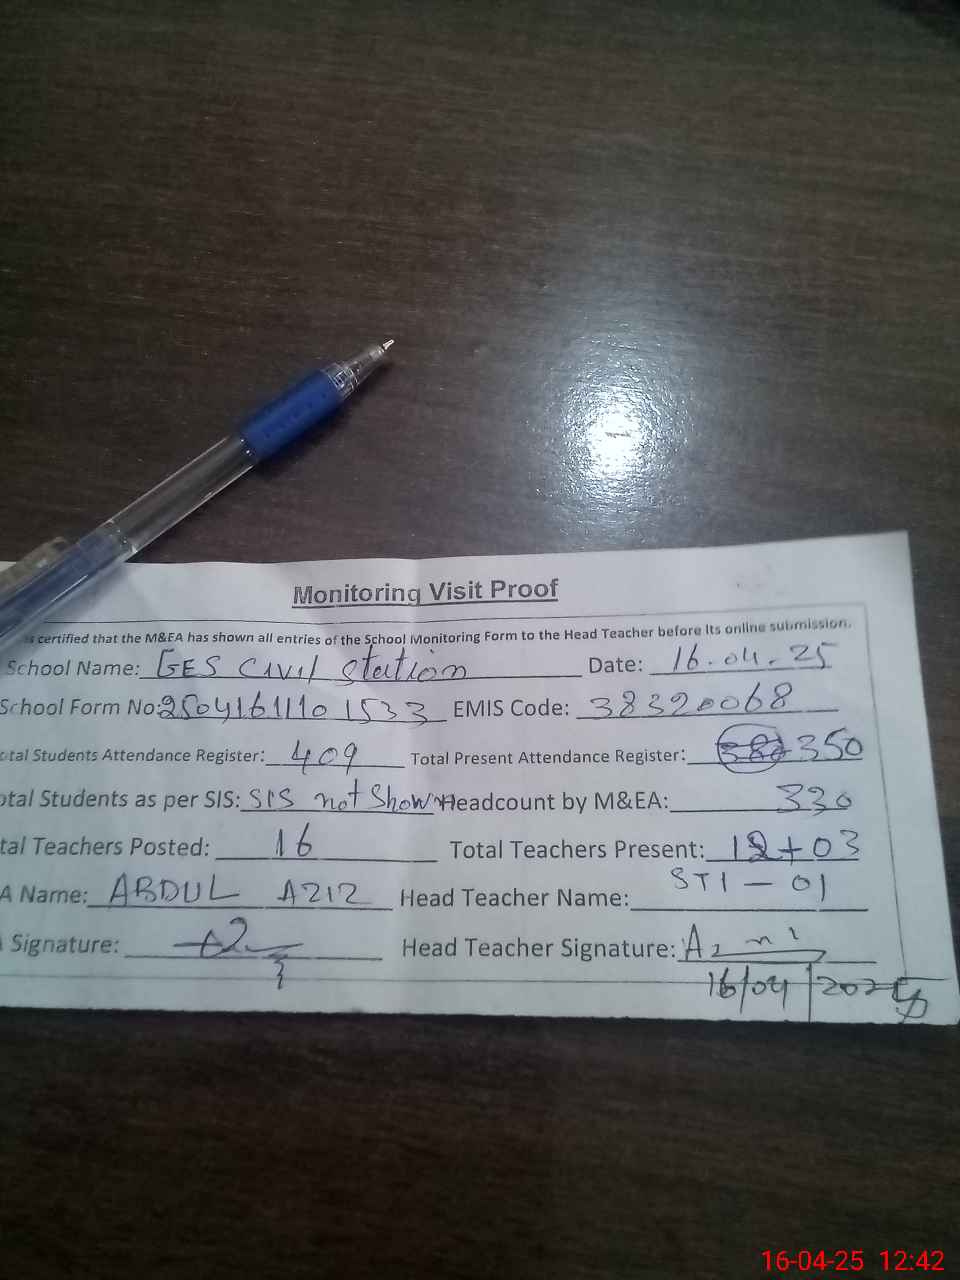 Monitoring Visit Proof
is certified that the M&EA has shown all entries of the School Monitoring Form to the Head Teacher before Its online submission.
School Name: GES Civil Station Date: 16.04.25
School Form No: 2504161110 1533 EMIS Code: 38320068
otal Students Attendance Register: 409 Total Present Attendance Register: 350
otal Students as per SIS: SIS not Show Headcount by M&EA: 330
tal Teachers Posted: 16 Total Teachers Present: 12+03
STI - 01
A Name: ABDUL AZIZ Head Teacher Name:
Signature: Head Teacher Signature:
16/04/2025
16-04-25 12:42